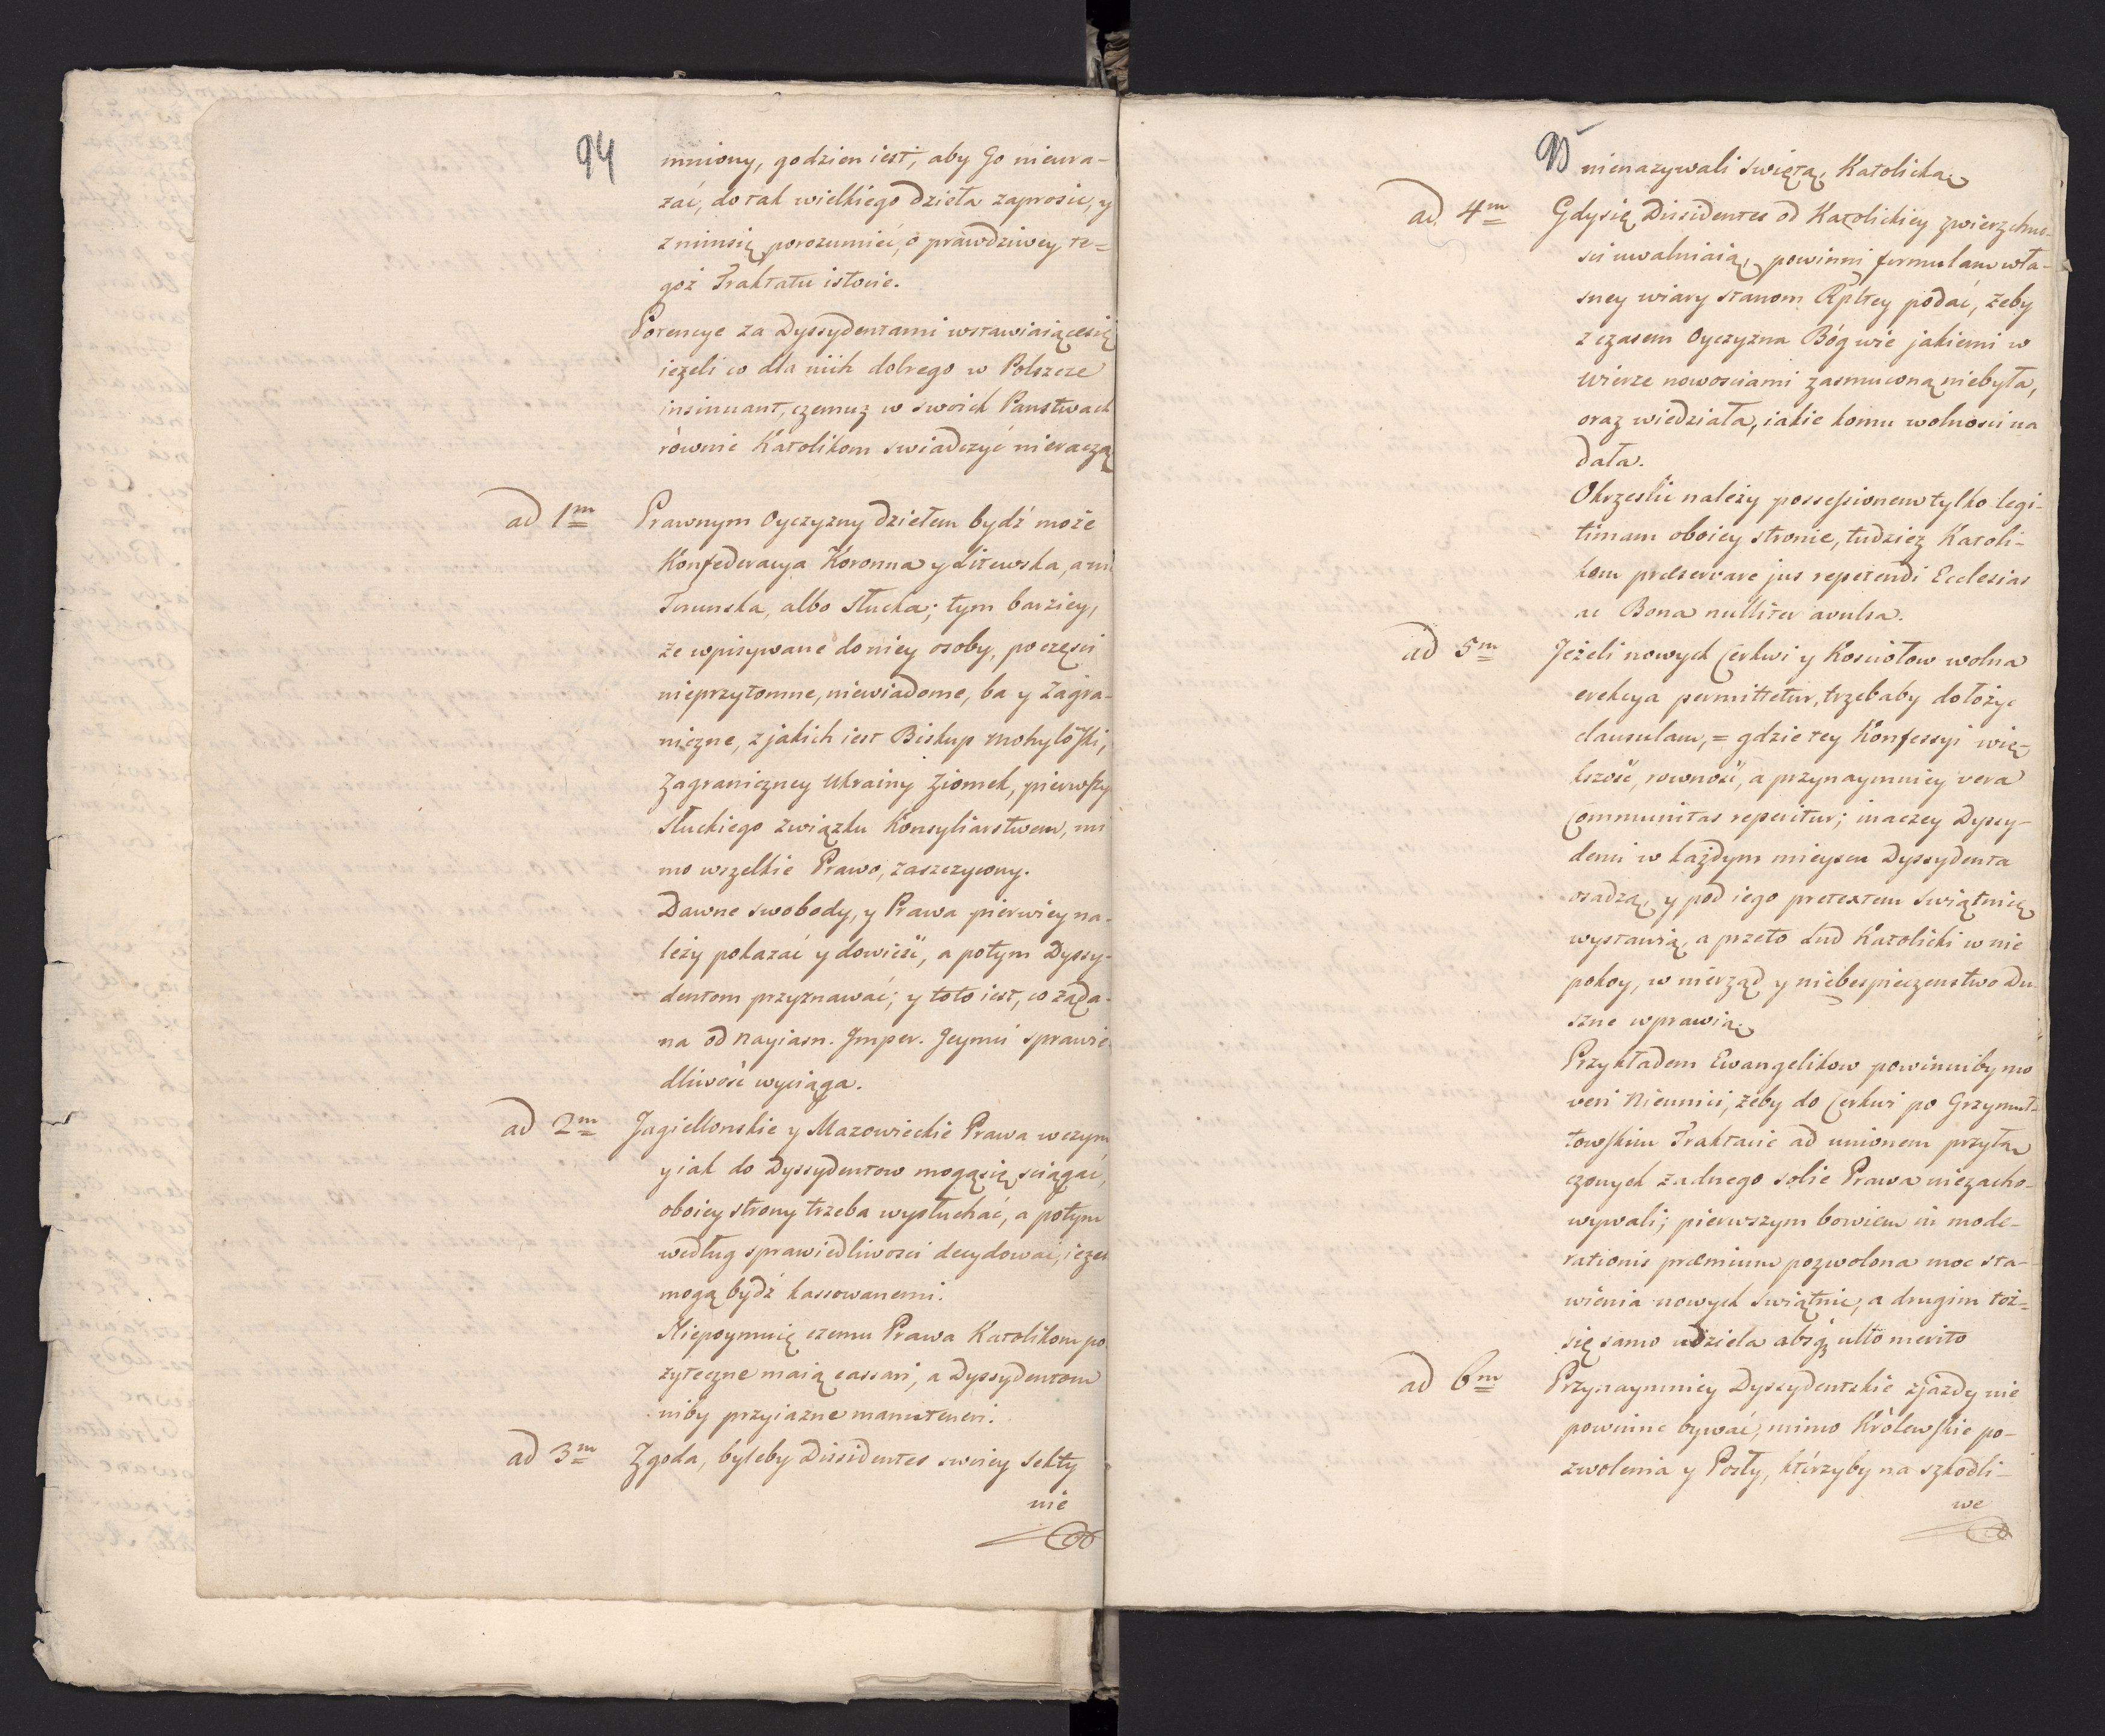 94
mniony, godzien iest, aby Go nieura-
zać, do tak wielkiego dzieła zaprosić, y
z nimsię porozumieć, o prawdziwey te=
goż Traktatu istocie.
Potencye za Dyssydentami wstawiaiącesię
ieżeli co dla nich dobrego w Polszcze
insinuant, czemuż w swoich Panstwach
równie Katolikom swiadczyć nieraczą
ad 1m Prawnym Oyczyzny dziełem bydź może
Konfederacya Koronna y Litewska, a ni
Torunska, albo Słucka; tym barziey,
że wpisywane do niey osoby, po części
nieprzytomne, niewiadome, ba y zagra-
niczne, z jakich iest Biskup Mohylowski,
zagraniczney Ukrainy ziomek, pierwszy
Słuckiego związku Konsyliarstwem, mi
mo wszelkie Prawo, zaszczycony.
Dawne swobody, y Prawa pierwiey na-
leży pokazać y dowieść, a potym Dyssy-
dentom przyznawać; y toto iest, co żąda-
na od Nayiasn. Imper. Jeymci sprawie
dliwość wyciąga.
ad 2m Jagiellonskie y Mazowieckie Prawa w czym
y iak do Dyssydentow mogąsię sciągać,
oboiey strony trzeba wysłuchać, a potym
według sprawiedliwosci decydować, ieżel
mogą bydź kassowanemi.
Niepoymuię czemu Prawa Katolikom po
żyteczne maią cassari, a Dyssydentom
niby przyiazne manuteneri.
ad 3m Zgoda, byleby Dissidentes swoiey Sekty
nie
95
nienazywali swiętą, Katolicką.
ad 4m Gdysię Dissidentes od Katolickiey zwierzchno-
sci uwalniaią, powinni formulam wła-
sney wiary stanom Rpltey podać, żeby
z czasem Oyczyzna Bóg wie jakiemi w
Wierze nowosciami zasmucona niebyła,
oraz wiedziała, iakie komu wolnosci na
dała.
Okrzeslić należy possessionem tylko legi-
timam oboiey stronie, tudzież Katoli-
kom praeservare jus repetendi Ecclesias
ac Bona nulliter avulsa.
ad 5m Jeżeli nowych Cerkwi y Kosciołow wolna
erekcya permittetur, trzebaby dołożyć
clausulam, = gdzie tey Konfessyi wię-
kszość, rowność, a przynaymniey vera
Communitas reperitur; inaczey Dyssy-
denci w każdym mieyscu Dyssydenta
osadzą, y pod iego pretextem swiątnicę
wystawią, a przeto Lud Katolicki w nie
pokoy, w nierząd y niebespieczenstwo Du
szne wprawią.
Przykładem Ewangelikow powinniby mo
veri Nieunici, żeby do Cerkwi po Grzymuł-
towskim Traktacie ad unionem przyłą
czonych żadnego sobie Prawa niezacho-
wywali; pierwszym bowiem in mode-
rationis praemium pozwolona moc sta-
wienia nowych swiątnic, a drugim toż-
się samo udziela absq ullo merito
ad 6m Przynaymniey Dyssydentskie zjazdy nie
powinne bywać, mimo Królewskie po-
zwolenia y Posły, którzyby na szkodli-
we